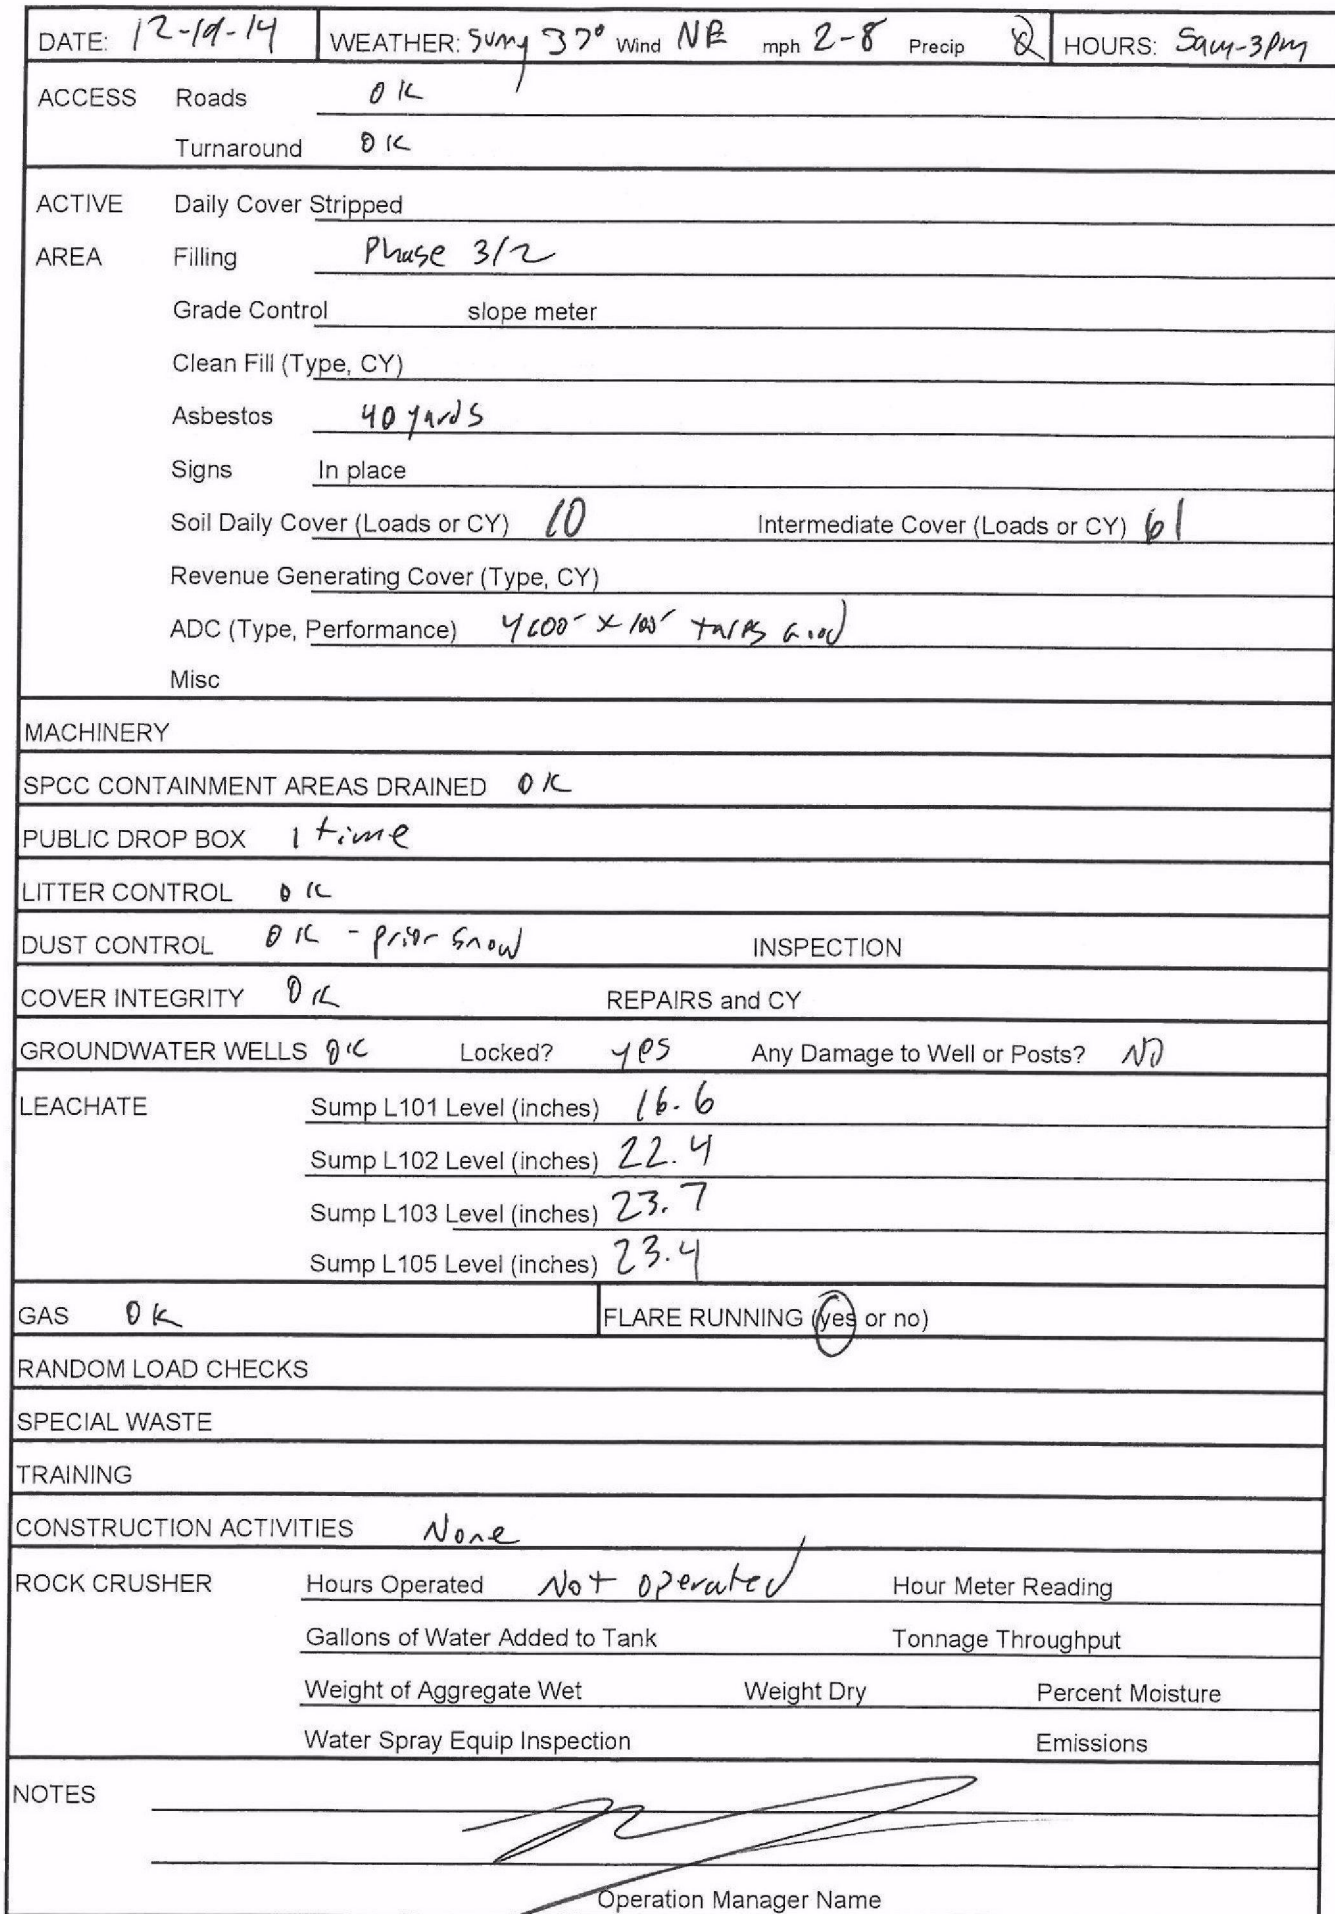 DATE: 12-19-14 WEATHER: Sunny 37° Wind NE mph 2-8 Precip 0 HOURS: 5am-3pm
ACCESS Roads OK
Turnaround OK
ACTIVE Daily Cover Stripped
AREA Filling Phase 3/2
Grade Control slope meter
Clean Fill (Type, CY)
Asbestos 40 yards
Signs In place
Soil Daily Cover (Loads or CY) 10 Intermediate Cover (Loads or CY) 61
Revenue Generating Cover (Type, CY)
ADC (Type, Performance) x 100' tarps Good
Misc
MACHINERY
SPCC CONTAINMENT AREAS DRAINED OK
PUBLIC DROP BOX 1 time
LITTER CONTROL OK
DUST CONTROL OK - prior snow INSPECTION
COVER INTEGRITY OK REPAIRS and CY
GROUNDWATER WELLS OK Locked? yes Any Damage to Well or Posts? NO
LEACHATE Sump L101 Level (inches) 16.6
Sump L102 Level (inches) 22.4
Sump L103 Level (inches) 23.7
Sump L105 Level (inches) 23.4
GAS OK FLARE RUNNING (yes or no)
RANDOM LOAD CHECKS
SPECIAL WASTE
TRAINING
CONSTRUCTION ACTIVITIES None
ROCK CRUSHER Hours Operated Not operated Hour Meter Reading
Gallons of Water Added to Tank Tonnage Throughput
Weight of Aggregate Wet Weight Dry Percent Moisture
Water Spray Equip Inspection Emissions
NOTES
Operation Manager Name